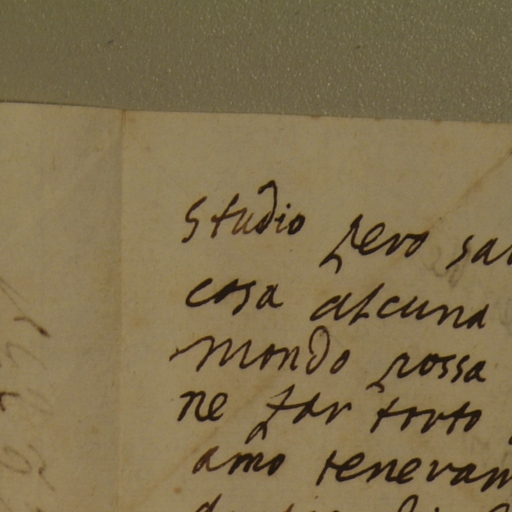 studio pero sa
cosa alcuna
mondo possa
ne far torto
amo tenevam